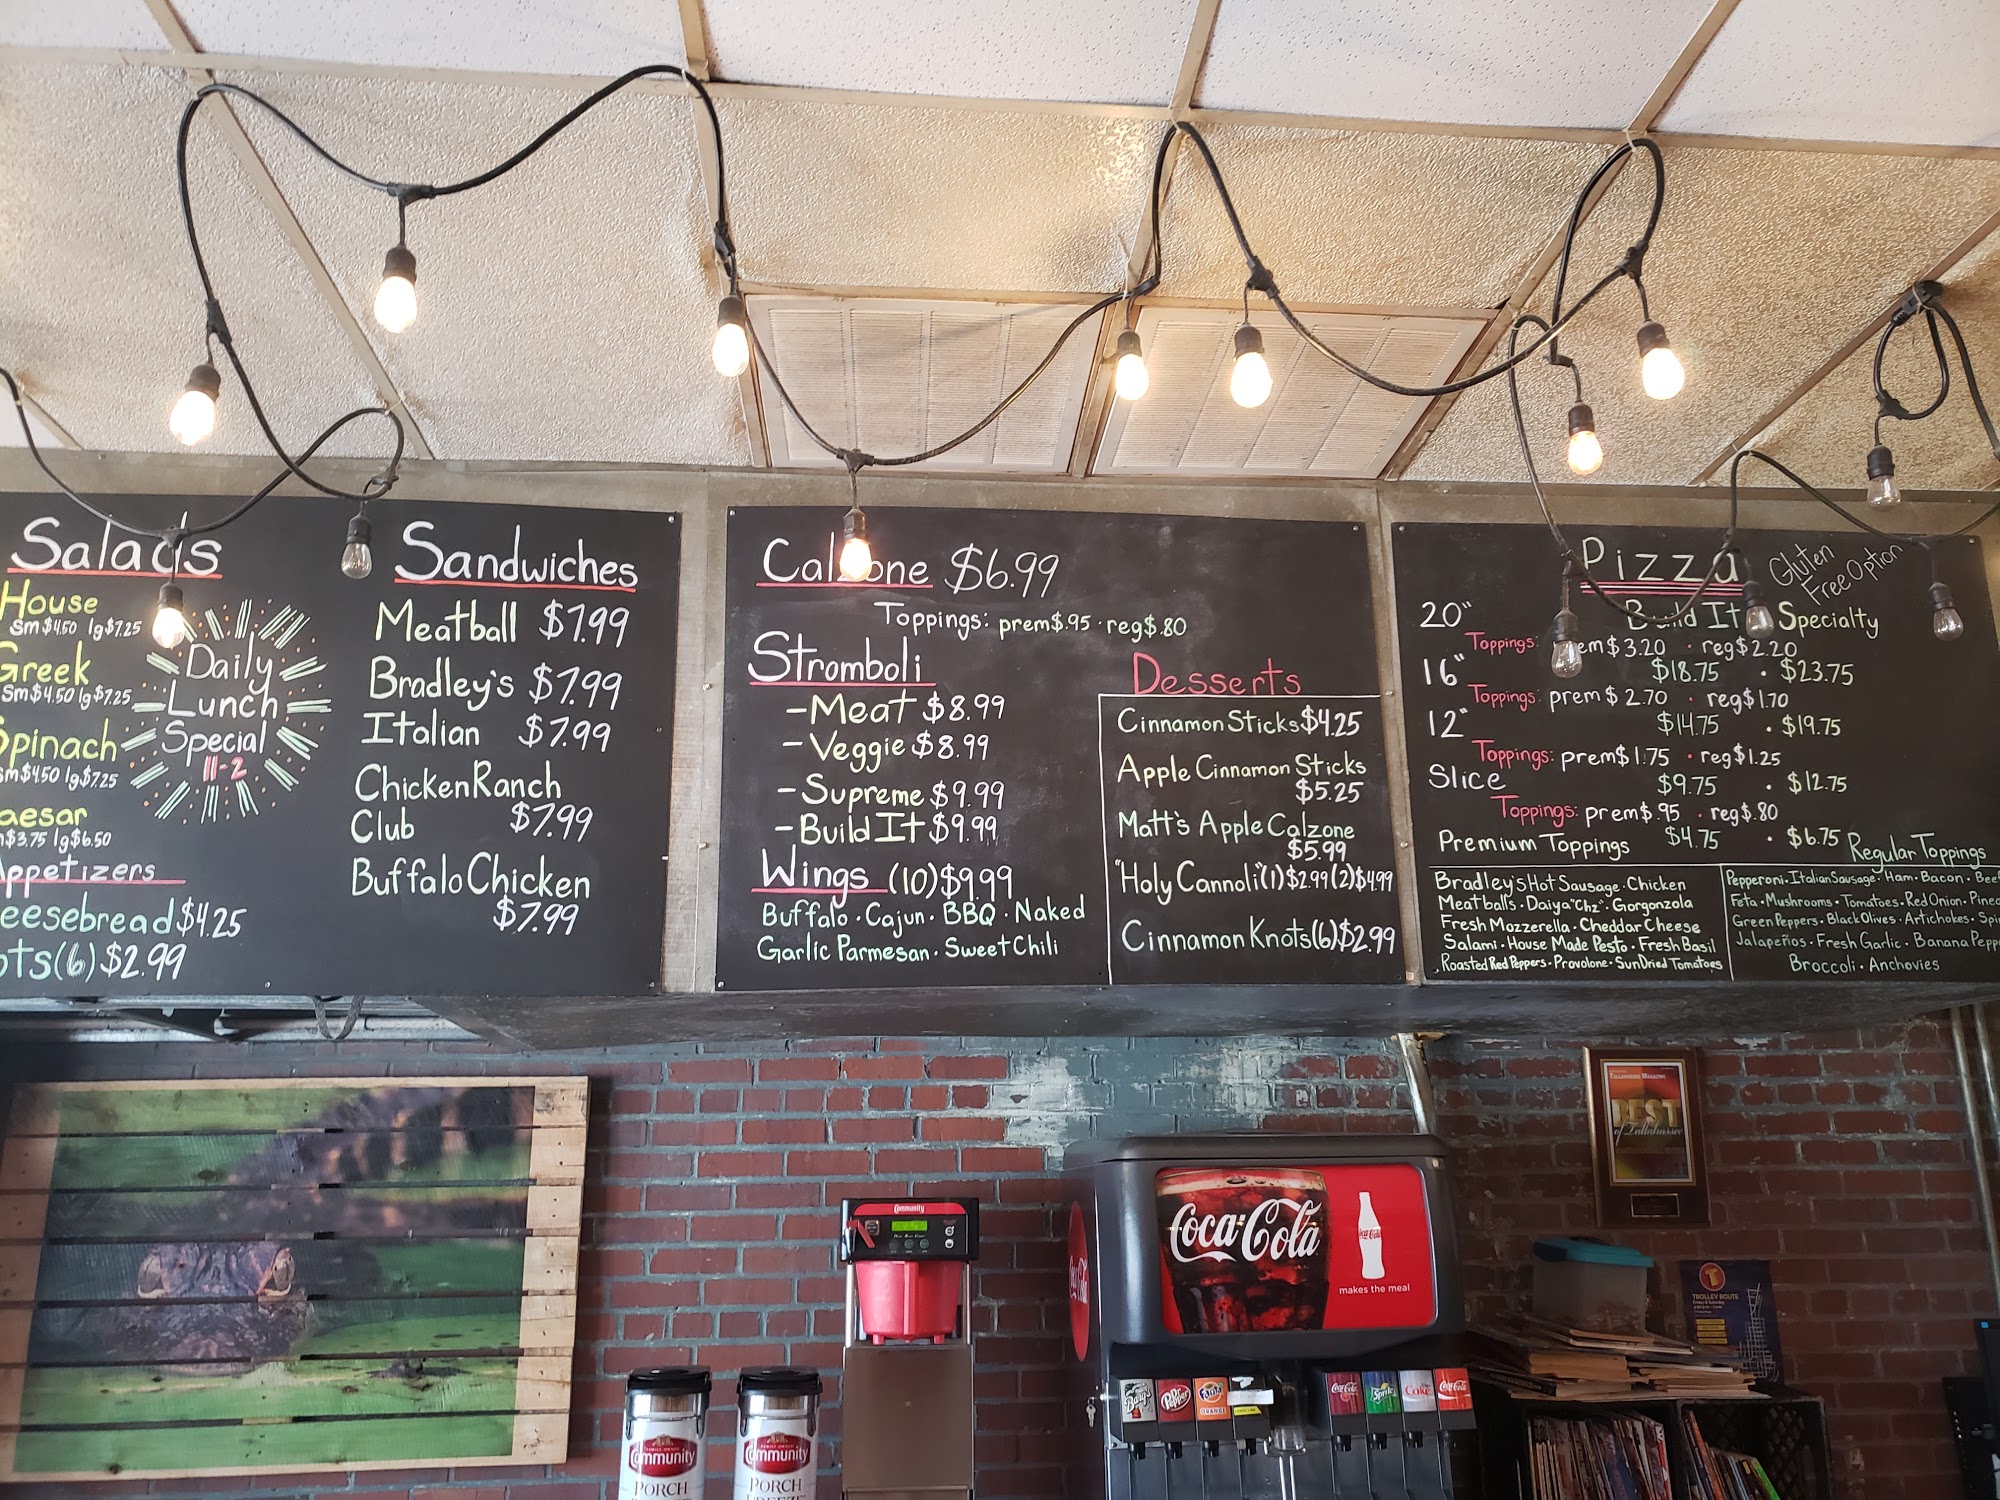 Salads
House
Sm $4.50 lg $7.25
Greek
Sm $4.50 lg $7.25
Spinach
sm $4.50 lg $7.25
aesar
$3.75 lg $6.50
Daily
Lunch
Special
11-2
ppetizers
eesebread $4.25
ots (6) $2.99
Sandwiches
Meatball $7.99
Bradley's $7.99
Italian $7.99
Chicken Ranch
Club $7.99
Buffalo Chicken
$7.99
Calzone $6.99
Toppings: prem $.95 · reg $.80
Stromboli
- Meat $8.99
- Veggie $8.99
- Supreme $9.99
- Build It $9.99
Wings (10) $9.99
Buffalo · Cajun · BBQ · Naked
Garlic Parmesan · Sweet Chili
Desserts
Cinnamon Sticks $4.25
Apple Cinnamon Sticks
$5.25
Matt's Apple Calzone
$5.99
"Holy Cannoli" (1) $2.99 (2) $4.99
Cinnamon Knots (6) $2.99
Pizza
Gluten
Free Option
Build It Specialty
20"
Toppings: em $3.20 · reg $2.20
16" $18.75 · $23.75
Toppings: prem $2.70 · reg $1.70
12" $14.75 · $19.75
Toppings: prem $1.75 · reg $1.25
Slice $9.75 · $12.75
Toppings: prem $.95 · reg $.80
$4.75 · $6.75
Premium Toppings
Bradley's Hot Sausage · Chicken
Meatballs · Daiya "Chz" · Gorgonzola
Fresh Mozzerella · Cheddar Cheese
Salami · House Made Pesto · Fresh Basil
Roasted Red Peppers · Provolone · Sun Dried Tomatoes
Regular Toppings
Pepperoni · Italian Sausage · Ham · Bacon · Beef
Feta · Mushrooms · Tomatoes · Red Onion · Pinea
Green Peppers · Black Olives · Artichokes · Spi
Jalapeños · Fresh Garlic · Banana Pepp
Broccoli · Anchovies
Community
Community
PORCH
Community
PORCH
Coca-Cola
Coca-Cola
makes the meal
Coca-Cola
Barq's
Dr Pepper
Fanta
ORANGE
Coca-Cola
Sprite
Coke
Coca-Cola
TALLAHASSEE MAGAZINE
BEST
of Tallahassee
T
TROLLEY ROUTE